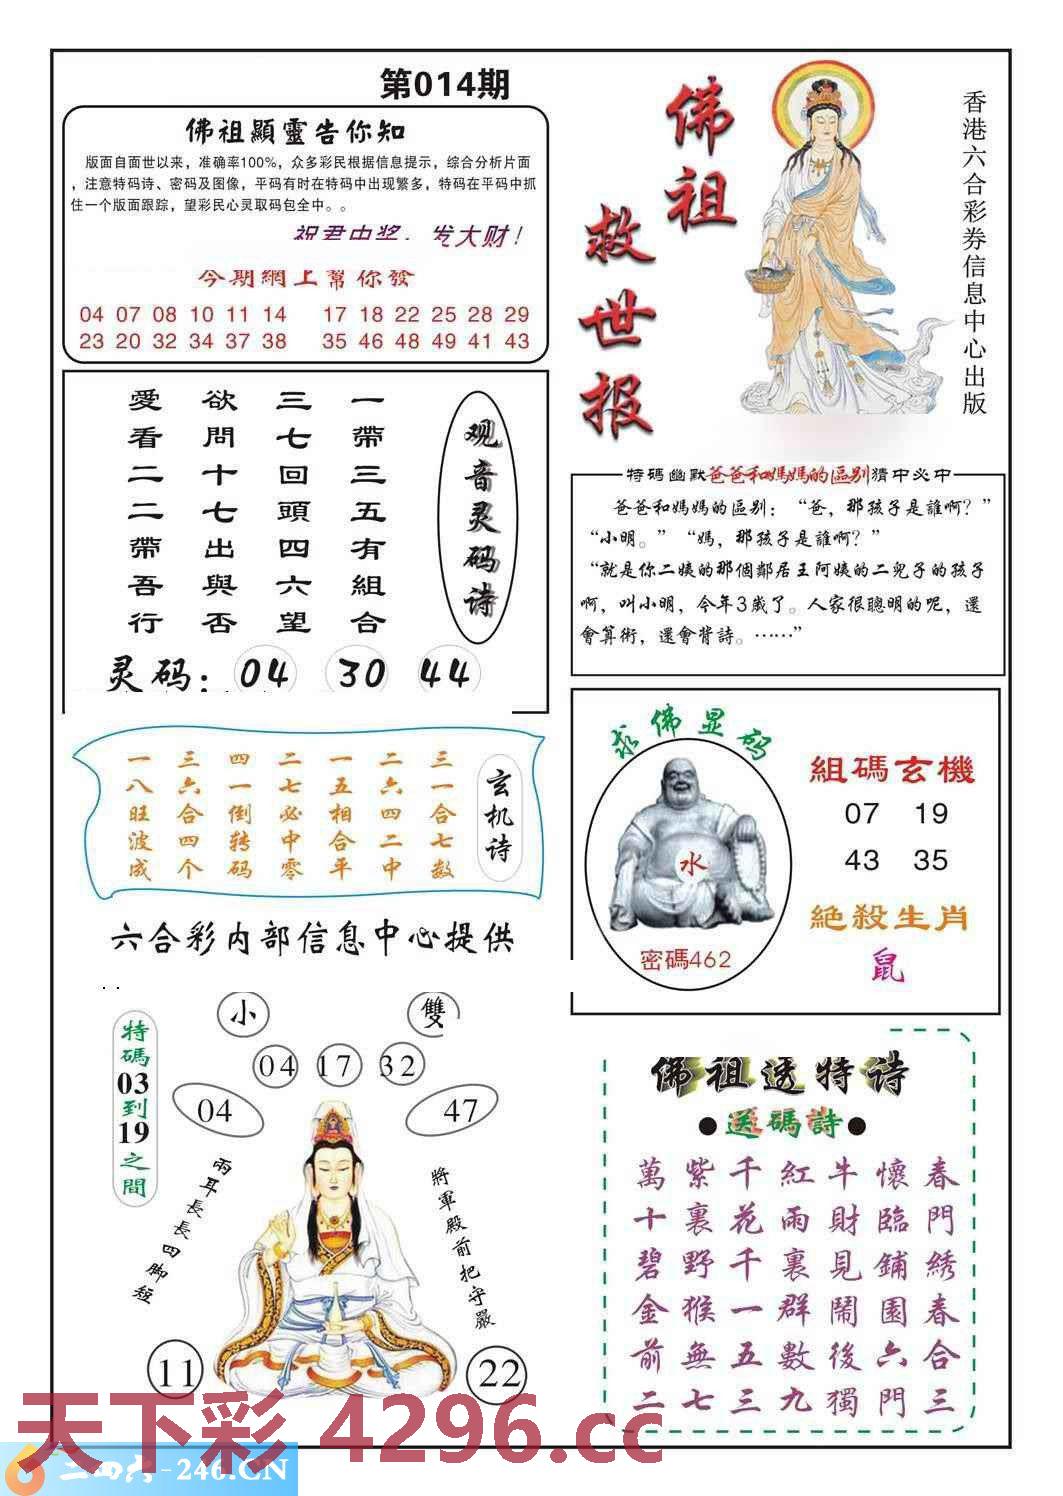 第014期
佛祖顯靈告你知
版面自面世以来，准确率100%，众多彩民根据信息提示，综合分析片面
，注意特码诗、密码及图像，平码有时在特码中出现繁多，特码在平码中抓
住一个版面跟踪，望彩民心灵取码包全中。。
祝君中奖，发大财！
今期網上幫你發
04 07 08 10 11 14 17 18 22 25 28 29
23 20 32 34 37 38 35 46 48 49 41 43
佛祖
救世报
香港六合彩券信息中心出版
观音灵码诗
一帶三五有組合
三七回頭四六望
欲問十七出與否
愛看二二帶吾行
灵码：04 30 44
特碼幽默爸爸和媽媽的區别猜中必中
爸爸和媽媽的區别：“爸，那孩子是誰啊？”
“小明。”“媽，那孩子是誰啊？”
“就是你二姨的那個鄰居王阿姨的二兒子的孩子
啊，叫小明，今年3歲了。人家很聰明的呢，還
會算術，還會背詩。……”
玄机诗
三一合七数
二六四二中
一五相合平
二七必中零
四一倒转码
三六合四个
一八旺波成
六合彩内部信息中心提供
求佛显码
水
密碼462
組碼玄機
07 19
43 35
絕殺生肖
鼠
特碼03到19之間
小 雙
04 17 32
04 47
兩耳長長四脚短
將軍殿前把守嚴
11 22
佛祖透特诗
●送碼詩●
春門綉春合三
懷臨鋪園六門
牛財見鬧後獨
紅雨裏群數九
千花千一五三
紫裏野猴無七
萬十碧金前二
天下彩 4296.cc
二四六-246.CN